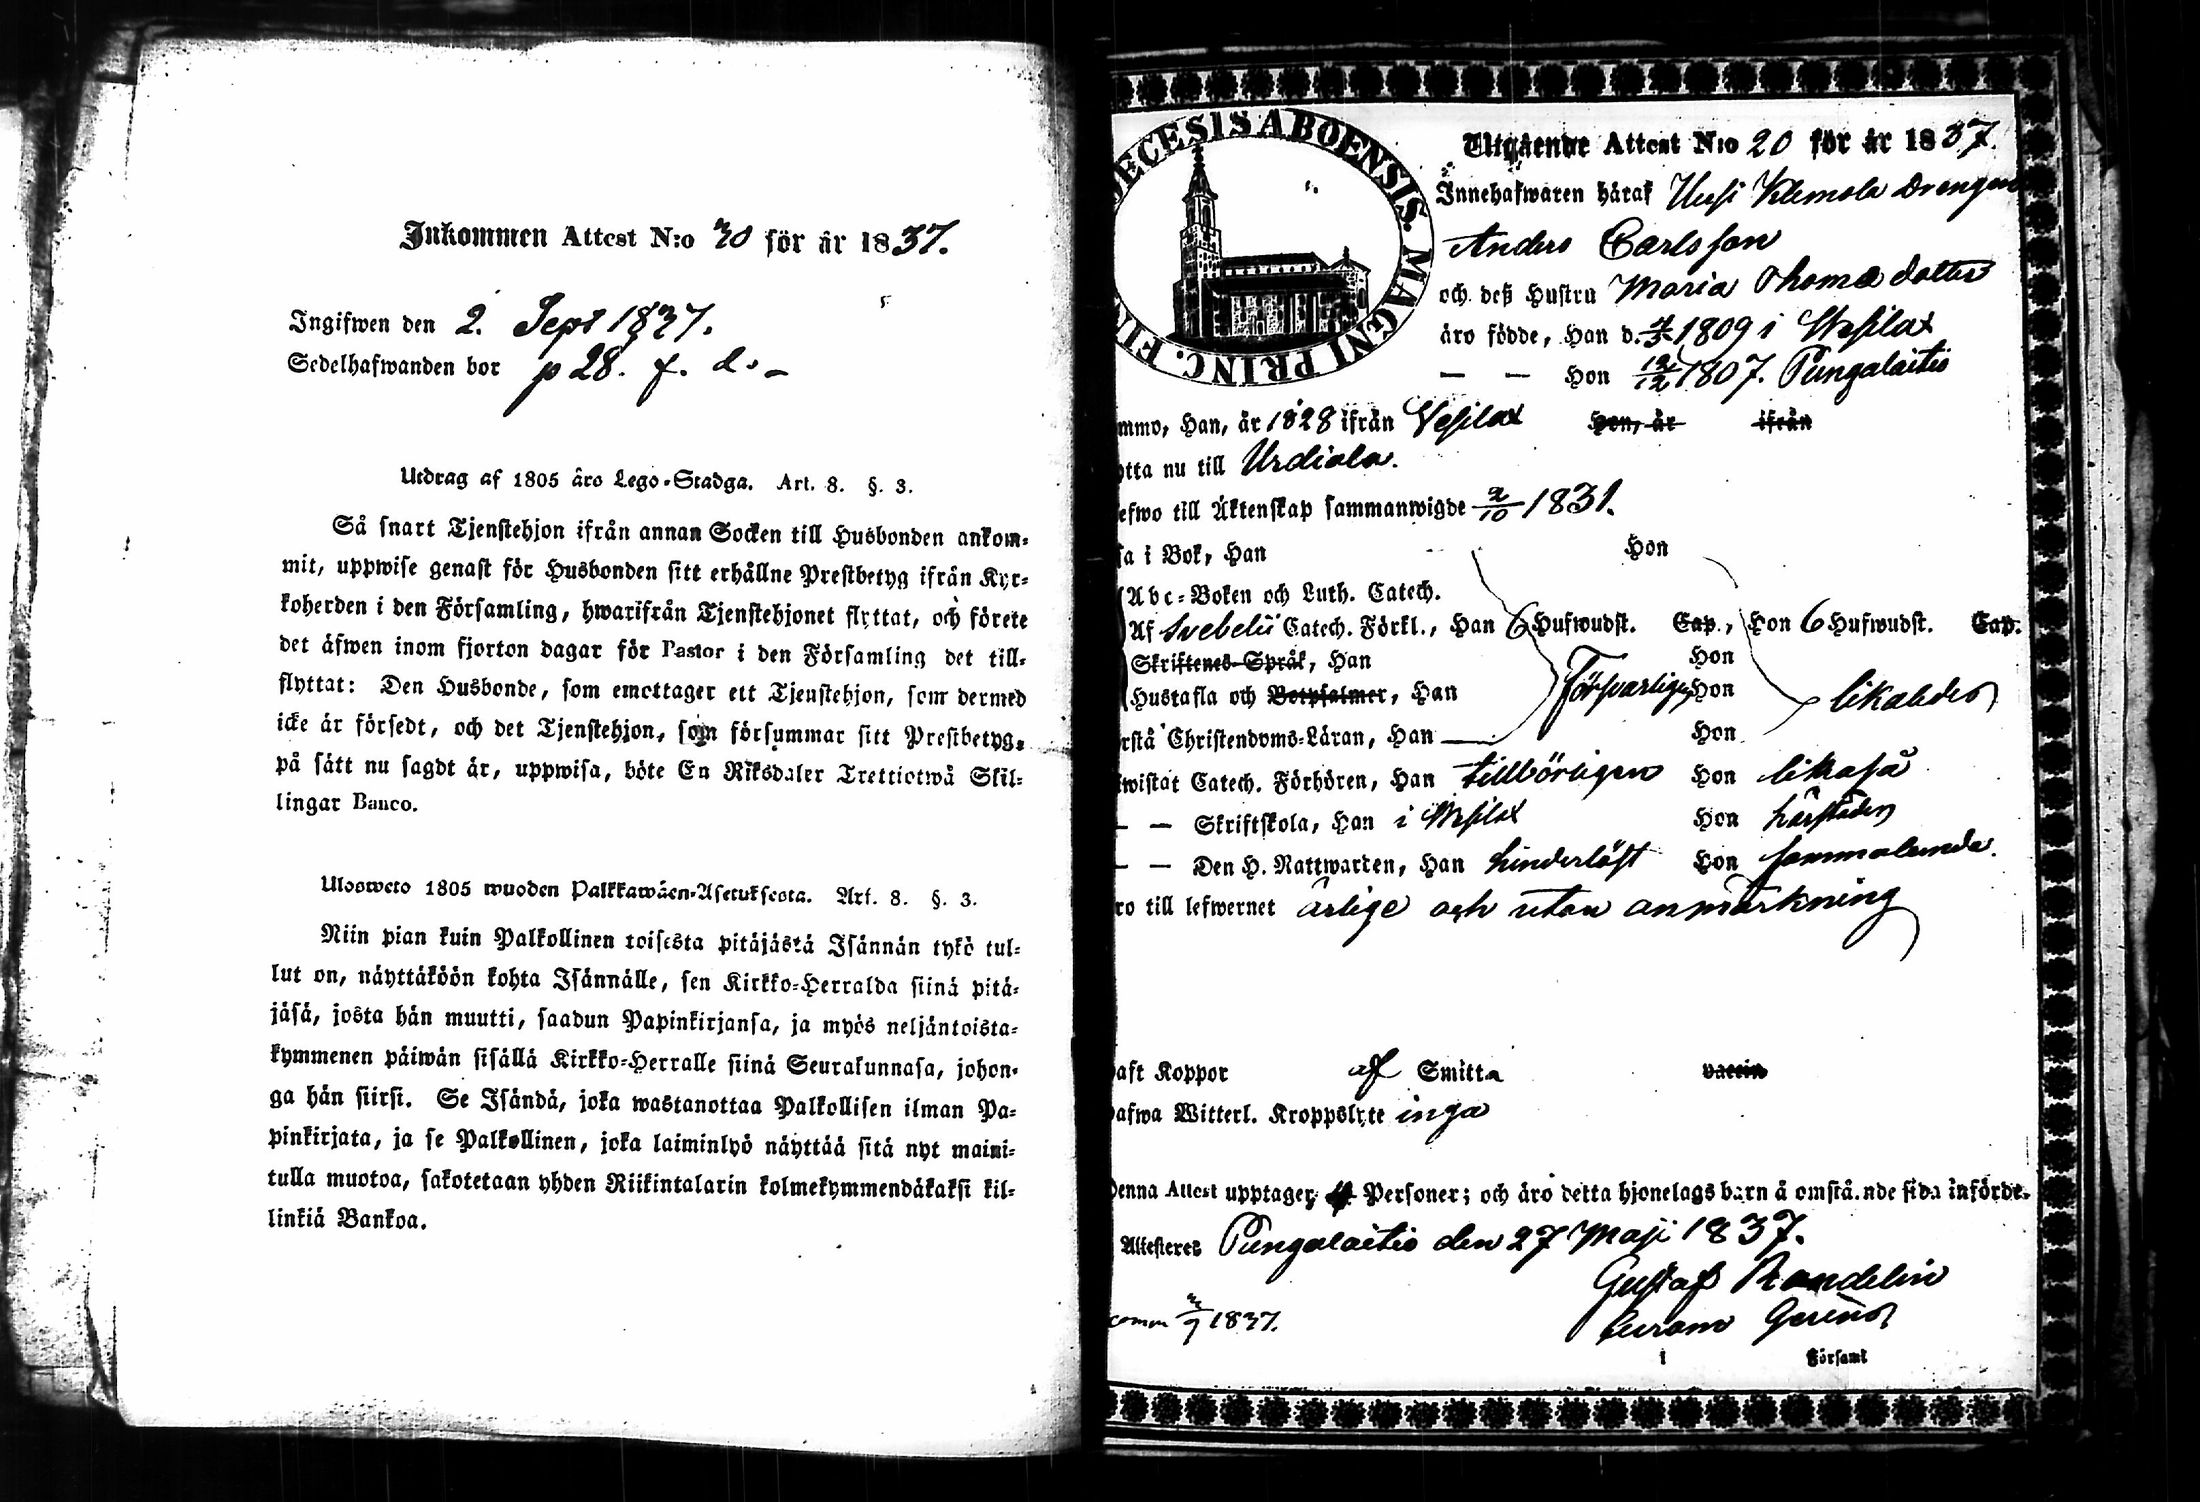 Inkommen Attest N:o 70 för år 1837.
Ingifwen den 2. Sept 1837.
Sedelhafwanden bor p 28. f. d.
Utdrag af 1805 års Lego-Stadga. Art. 8. §. 3.
Så snart Tjenstehjon ifrån annan Socken till Husbonden ankom-
mit, uppwise genast för Husbonden sitt erhållne Prestbetyg ifrån Kyr-
koherden i den Församling, hwarifrån Tjenstehjonet flyttat, och förete
det äfwen inom fjorton dagar för Pastor i den Församling det till-
flyttat: Den Husbonde, som emottager ett Tjenstehjon, som dermed
icke är försedt, och det Tjenstehjon, som försummar sitt Prestbetyg,
på sätt nu sagdt är, uppwisa, böte En Riksdaler Trettiotwå Skil-
lingar Banco.
Ulosweto 1805 wuoden Palkkawäen-Asetuksesta. Art. 8. §. 3.
Niin pian kuin Palkollinen toisesta pitäjästä Isännän tykö tul-
lut on, näyttäköön kohta Isännälle, sen Kirkko-Herralda siinä pitä-
jäsä, josta hän muutti, saadun Papinkirjansa, ja myös neljäntoista-
kymmenen päiwän sisällä Kirkko-Herralle siinä Seurakunnasa, johon-
ga hän siirsi. Se Isändä, joka wastanottaa Palkollisen ilman Pa-
pinkirjata, ja se Palkollinen, joka laiminlyö näyttää sitä nyt maini-
tulla muotoa, sakotetaan yhden Riikintalarin kolmekymmendäkaksi kil-
linkiä Bankoa.
DECESIS ABOENSIS. MAGNI PRINC. FI
Utgående Attest N:o 20 för år 1837.
Innehafwaren häraf Uusi Klemola Drengen
Anders Carlsson
och deß Hustru Maria Thomædotter
äro födde, Han d. 4/3 1809 i Wesilax
— — Hon 12/12 1807. Pungalaitio
mmo, Han, år 1828 ifrån Vesilax Hon, år ifrån
tta nu till Urdiala.
efwo till Äktenskap sammanwigde 2/10 1831.
sa i Bok, Han Hon
Abc-Boken och Luth. Catech.
Af Svebelii Catech. Förkl., Han 6 Hufwudst. Cap., Hon 6 Hufwudst. Cap.
Skriftenes Språk, Han Hon
Hustafla och Botpsalmer, Han Försvarligen Hon likaledes
rstå Christendoms-Läran, Han Hon
wistat Catech. Förhören, Han tillbörligen Hon likaså
— — Skriftskola, Han i Wesilax Hon härstädes
— — Den H. Nattwarden, Han hinderlöst Hon sammalunda.
ro till lefwernet ärlige och utan anmärkning
aft Koppor af Smitta vaccin
afwa Witterl. Kroppslyte inga
Denna Attest upptager Personer; och äro detta hjonelags barn å omstående sida införde.
Attesteres Pungalaitio den 27 Maji 1837.
Gustaf Randelin
curam Gerens
i Församl
comm 2/9 1837.